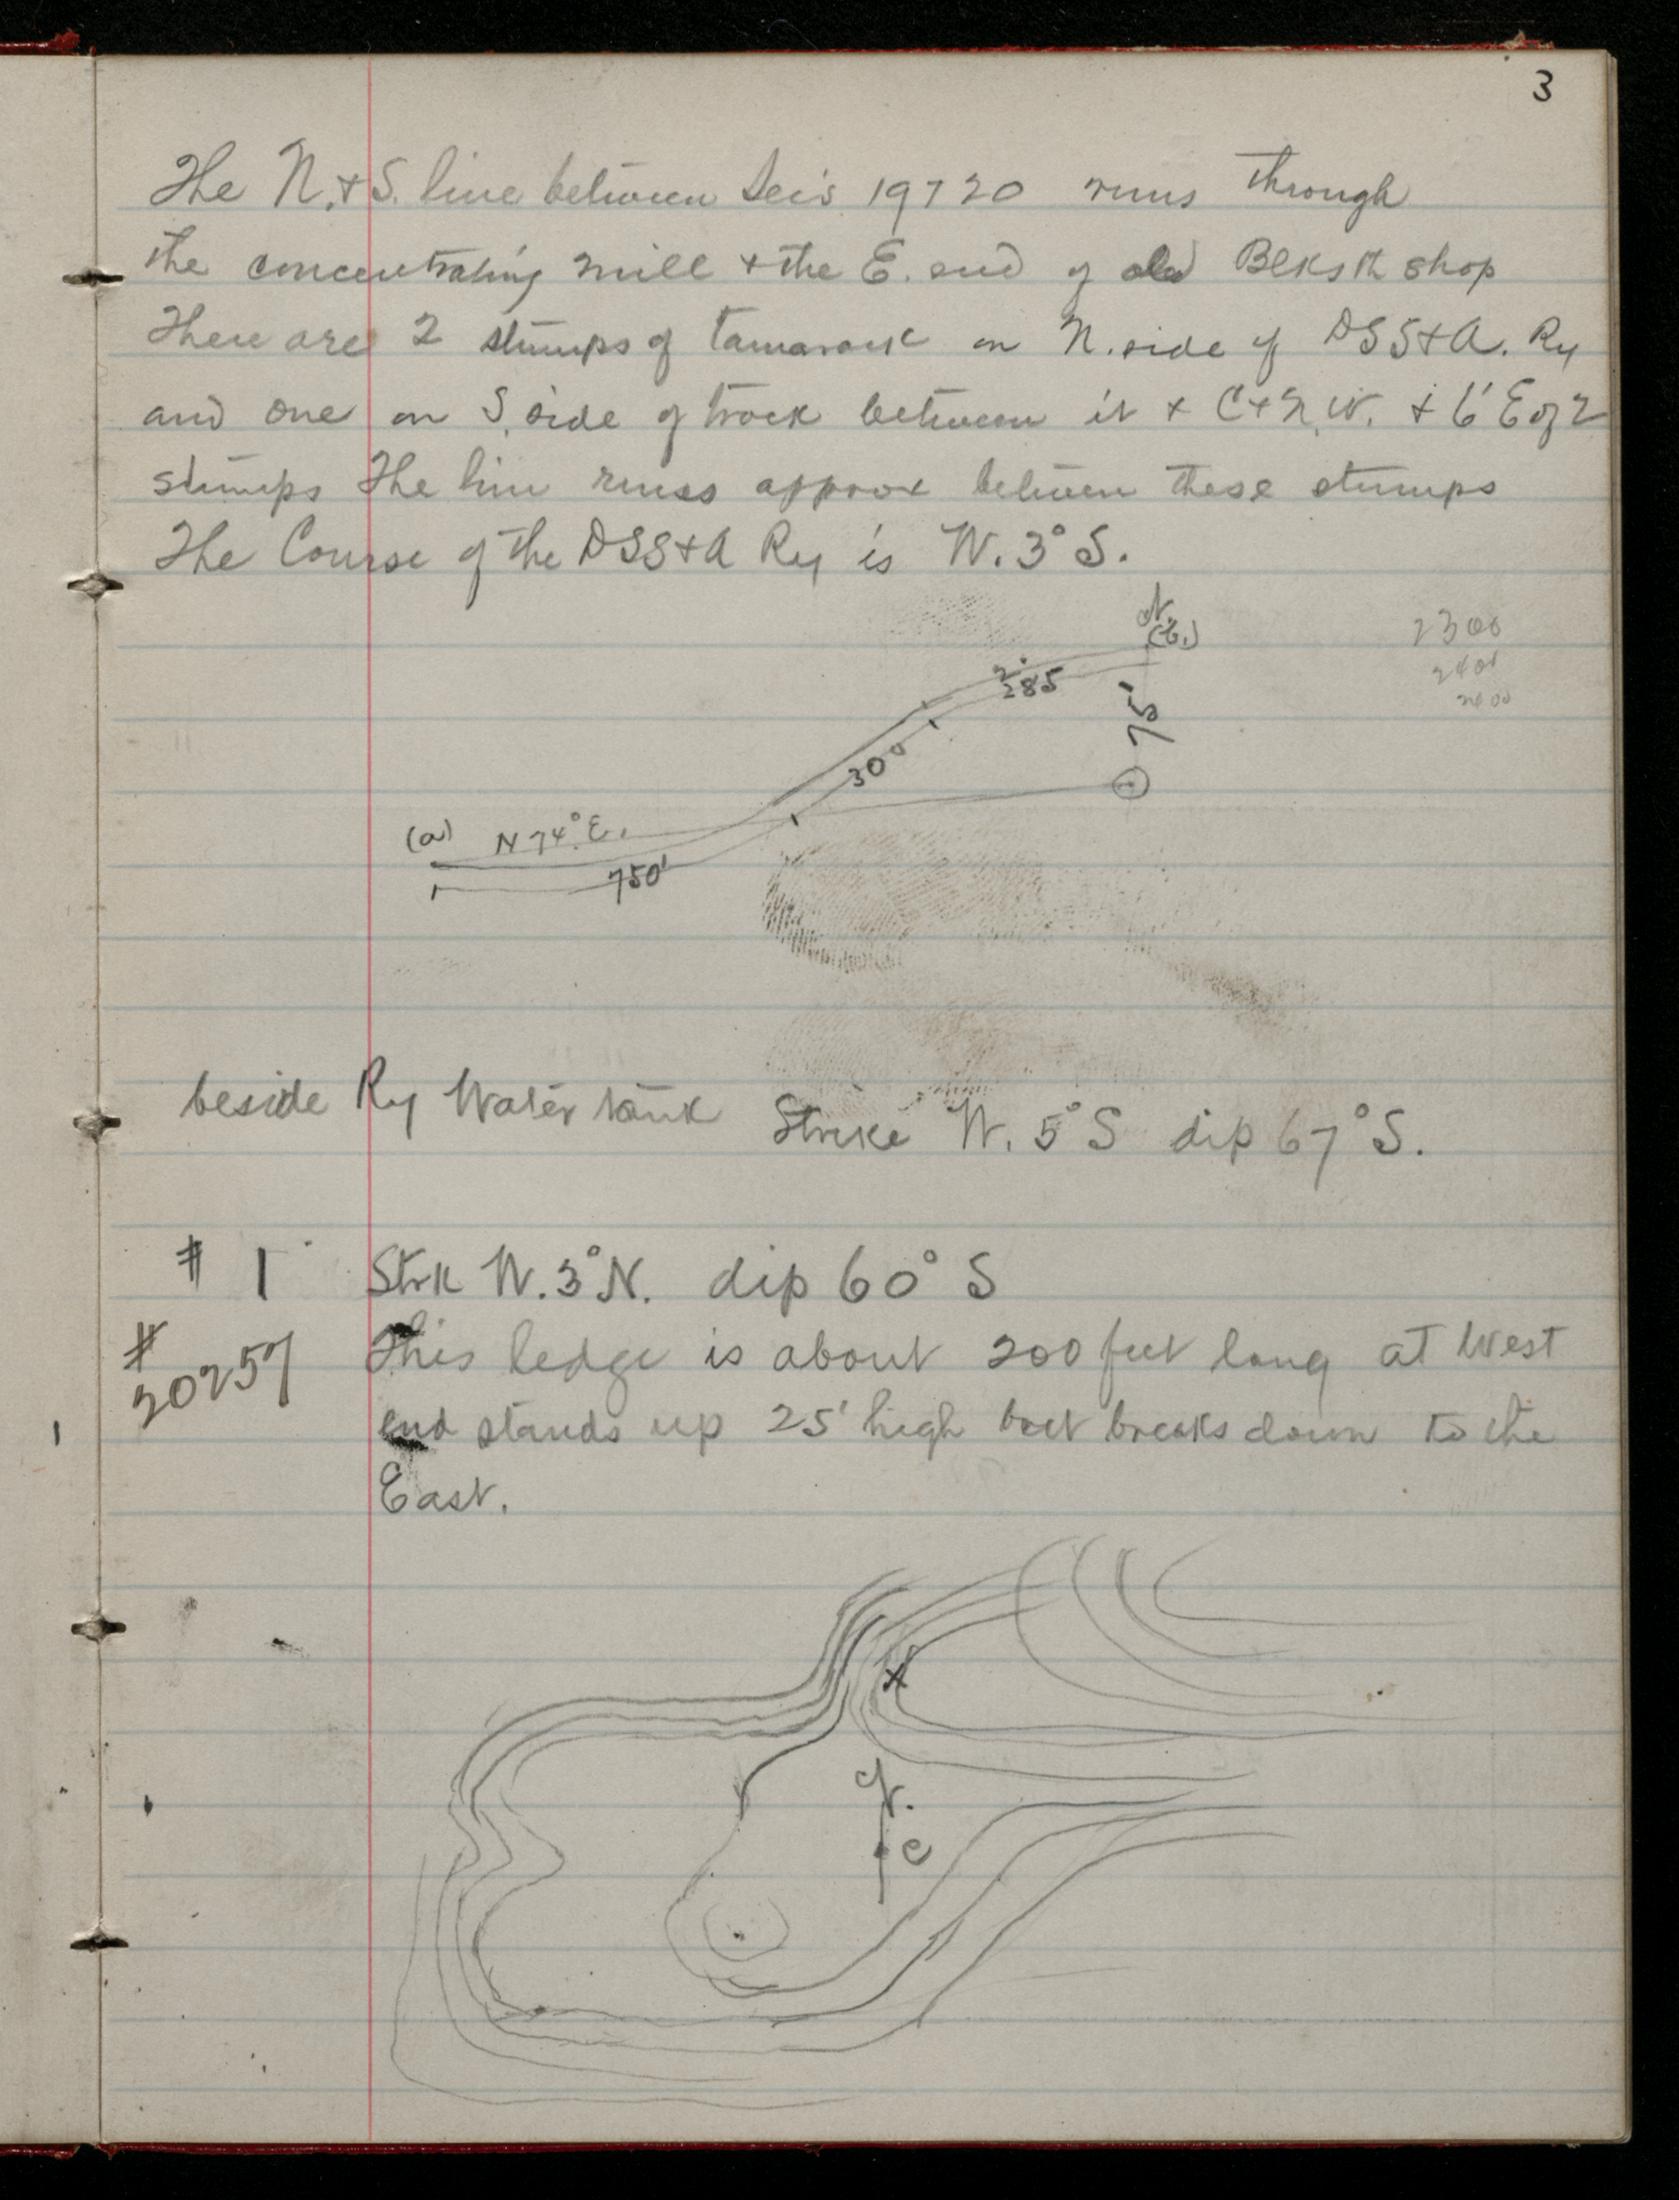 3
The N. + S. line between Sec's 19 + 20 runs through
the concentrating mill + the E. end of old Blksth shop
There are 2 stumps of tamarack on N. side of DSS+A. Ry
and one on S. side of track between it + C+N.W. + 6' E of 2
stumps The line runs approx between these stumps
The Course of the DSS+A Ry is W. 3° S.
N
(b.)
2300
2400
285
75'
300
(a) N 74° E.
750'
beside Ry Water tank Strike W. 5° S dip 67° S.
# 1 Strk W. 3° N. dip 60° S
# 20257 This ledge is about 200 feet long at West
end stands up 25' high but breaks down to the
East.
x
N.
c